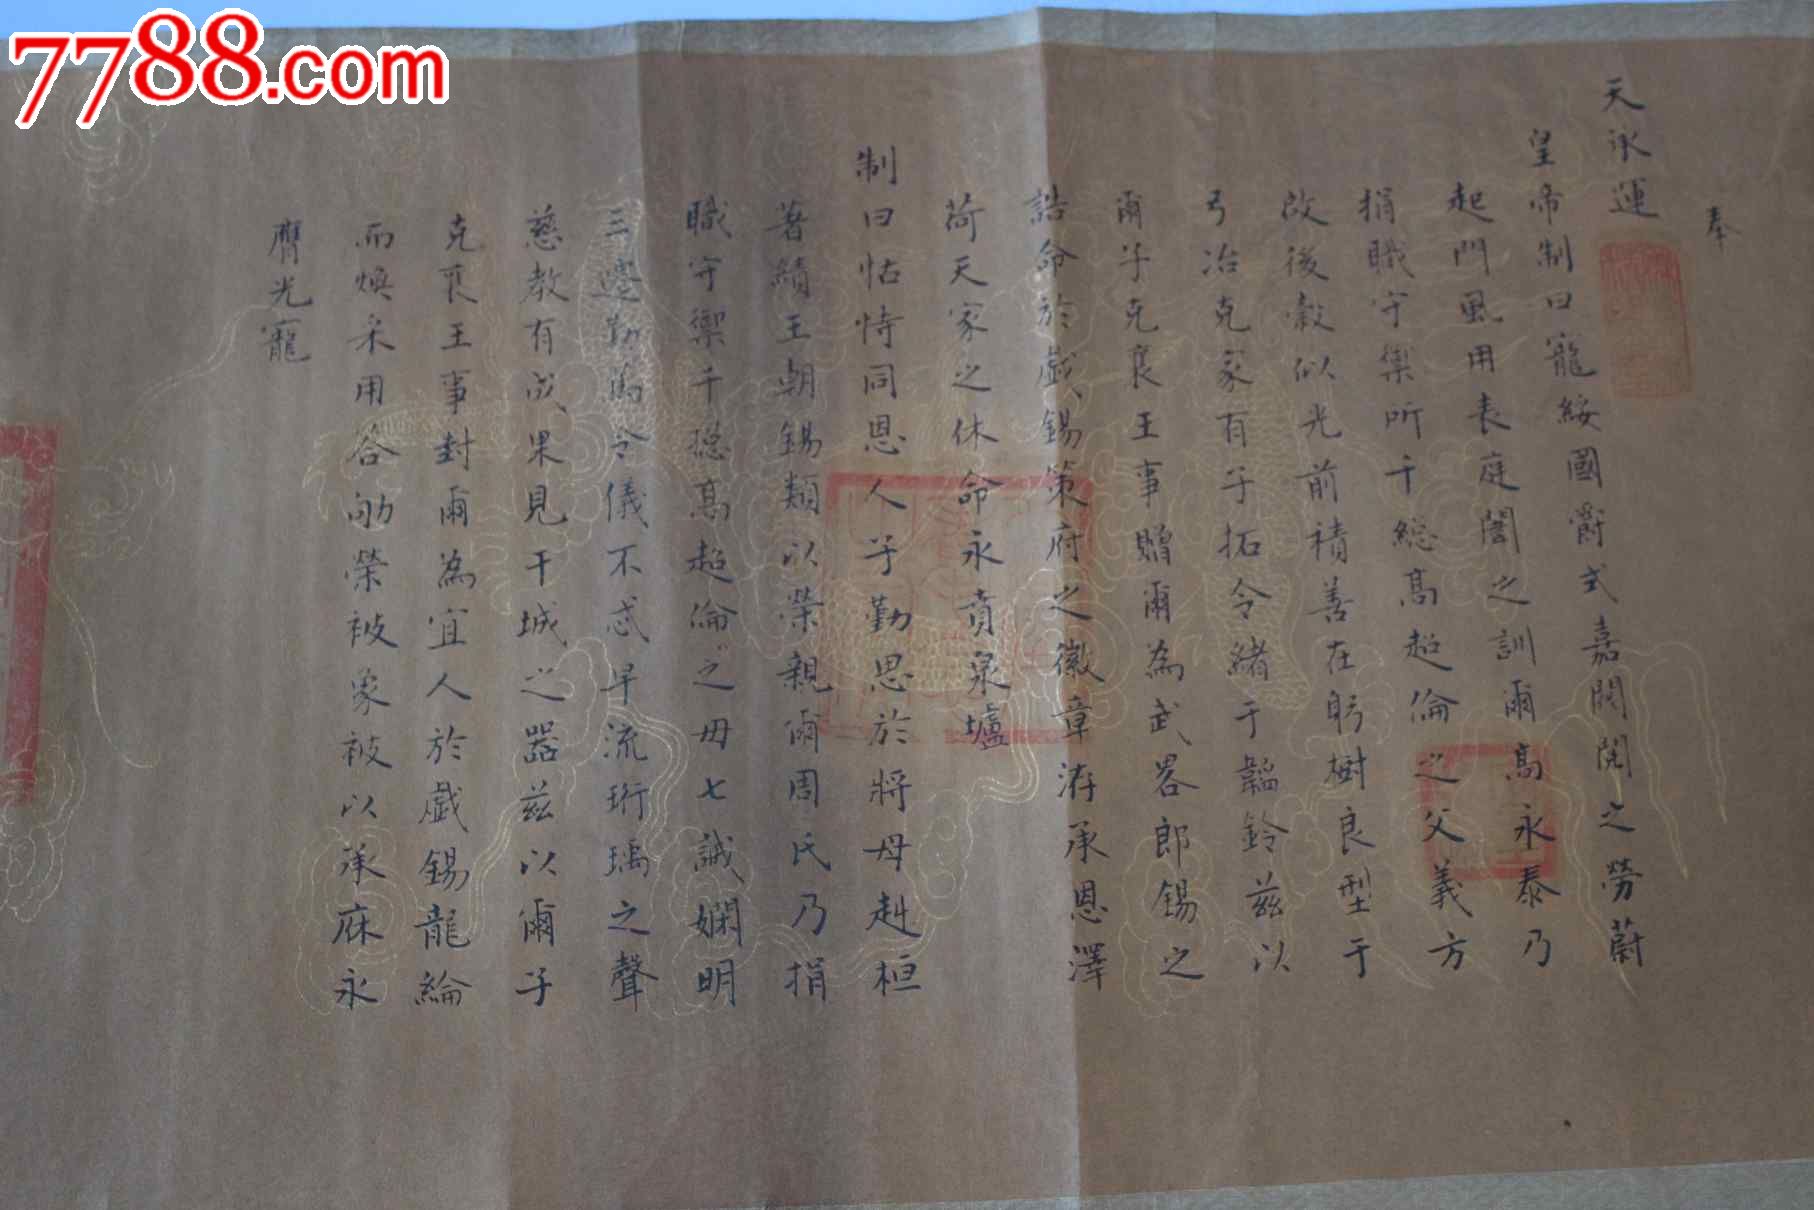 7788.com
奉
天承運
皇帝制曰寵綏國爵式嘉閥閱之勞蔚
起門風用表庭闈之訓爾高永泰乃
捐職守禦所千總高超倫之父義方
啟後穀似光前積善在躬樹良型于
弓冶克家有子拓令緒于韜鈴茲以
爾子克襄王事贈爾為武畧郎錫之
誥命於戲錫策府之徽章洊承恩澤
荷天家之休命永賁泉壚
制曰怙恃同恩人子勤思於將母赳桓
著績王朝錫類以榮親爾周氏乃捐
職守禦千總高超倫之母七誡嫻明
三遷勤篤令儀不忒早流珩瑀之聲
慈教有成果見干城之器茲以爾子
克襄王事封爾為宜人於戲錫龍綸
而煥采用答劬榮被象被以承庥永
膺光寵